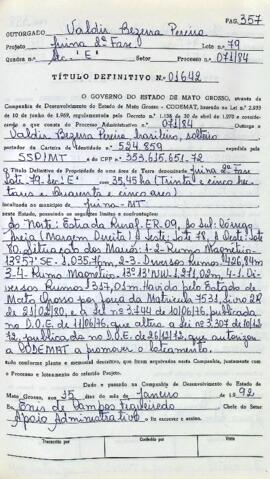 PAG. 357
OUTORGADO Valdir Bezerra Pereira
Projeto Juina 2ª Fase Lote n.º 79
Quadra n.º Sec. "E" Setor Processo 071/84
TÍTULO DEFINITIVO N.º 01642
O GOVERNO DO ESTADO DE MATO GROSSO, através da
Companhia de Desenvolvimento do Estado de Mato Grosso - CODEMAT, baseado na Lei n.º 2.933
de 10 de junho de 1969, regulamentada pelo Decreto n.º 1.138 de 30 de abril de 1970 e conside-
rando o que consta do Processo Administrativo n.º 071/84 Outorga a
Valdir Bezerra Pereira, brasileiro, solteiro
portador da Carteira de Identidade n.º 524.859 expedida por
SSP/MT e do CPF n.º 353.615.651.72
o Título Definitivo de Propriedade de uma área de Terra denominada Juina 2ª Fase
Lote 79 Sec. "E" com 35,4580 (Trinta e cinco hec
tares e
localizada no município de Juina - MT
neste Estado, possuindo os seguintes limites e confrontações:
ao Norte: Estrada Rural ER. 09, ao Sul: Córrego
(Margem Direita) à Leste: Lote 78, à Oeste: Lote
80. dos Marcos: 1-2 Rumo Magnético
13º57'SE - 1.035,76m, 2-3. Diversos Rumos 426,84m
3-4. Rumo Magnético 13º13'NW - 1.271,02m, 4-1. Di
versos Rumos 357,01m. Havido pelo Estado de
Mato Grosso por força da Matrícula 7531, livro 2R
de 21/02/80, e a Lei nº 3.744 de 10/06/76, publicada
no D.O.E. de 11/06/76, que altera a Lei nº 3.307 de 10/12/
72, publicada no D.O.E. de 26/12/72, que autorizou
a CODEMAT a promover o loteamento.
tudo conforme planta e memorial descritivo, que ficam arquivados nesta Companhia, juntamente com
o Processo e loteamento do referido Projeto.
Dado e passado na Companhia de Desenvolvimento do Estado de
Mato Grosso, aos 15 dias do mês de Janeiro de 1.9 92
Eu Enis de Campos Figueiredo Chefe do Setor
Apoio Administrativo fiz escrever e assino.
Transcrito por
Conferido por
Visto